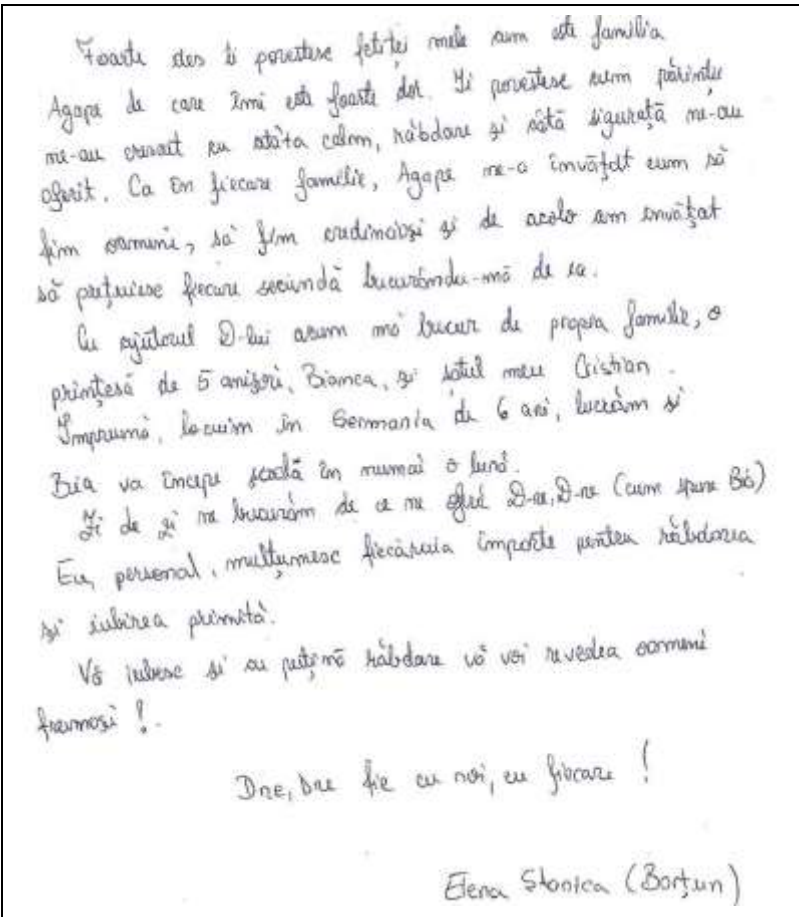 Foarte des îi povestesc fetiței mele cum este familia
Agape de care îmi este foarte dor. Îi povestesc cum părinții
ne-au crescut cu atâta calm, răbdare și câtă siguranță ne-au
oferit. Ca în fiecare familie, Agape ne-a învățat cum să
fim oameni, să fim credincioși și de acolo am învățat
să prețuiesc fiecare secundă bucurându-mă de ea.
Cu ajutorul D-lui acum mă bucur de propria familie, o
prințesă de 5 anișori, Bianca, și soțul meu Cristian.
Împreună, locuim în Germania de 6 ani, lucrăm și
Bia va începe școală în numai o lună.
Zi de zi ne bucurăm de ce ne oferă D-ne, D-ne (cum spune Bia)
Eu, personal, mulțumesc fiecăruia în parte pentru răbdarea
și iubirea primită.
Vă iubesc și cu puțină răbdare vă voi revedea oameni
frumoși !.
Dne, Dne fie cu noi, cu fiecare !
Elena Stanica (Borțun)